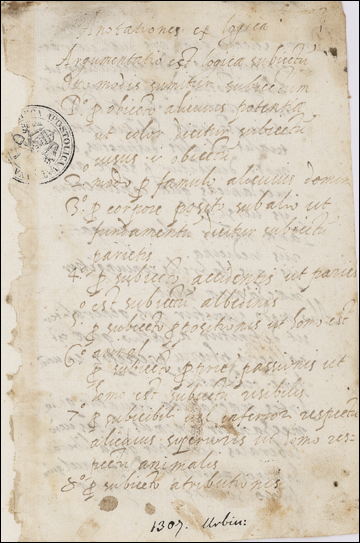 Anotationes ex logica
Argumentatio est logica subiectu
Octo modis sumitur subiectum
1º p obiecto alicuius potentiæ
ut color dicitur subiectu
uisus v obiectu
2º modo p famulo alicuius domini
3º p corpore posito sub alio ut
fundamentu dicitur subiectu
parietis
4º p subiecto accidentis ut paries
est subiectu albedinis
5º p subiecto ppositionis ut homo est
animal
6º p subiecto prop passionis ut
homo est subiectu risibilis
7º p subicibili vel inferiori respectu
alicuius superioris ut homo res-
pectu animalis
8º p subiecto atributionis
1307. Urbin: